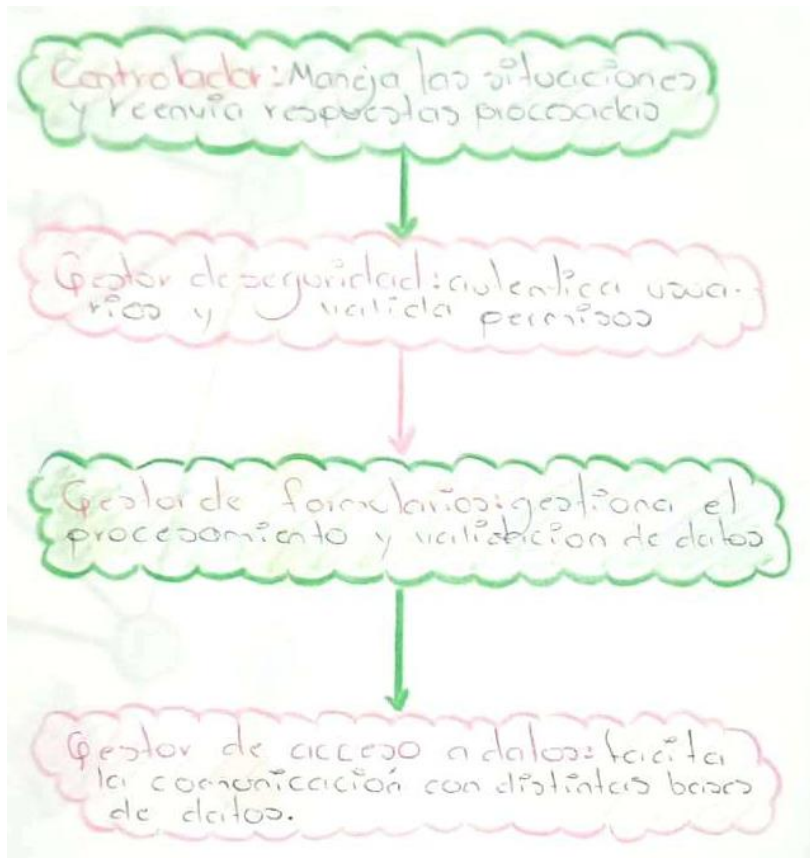 Controlador: Maneja las situaciones
y reenvia respuestas procesadas
Gestor de seguridad: autentica usua-
rios y valida permisos
Gestor de formularios: gestiona el
procesamiento y validacion de datos
Gestor de acceso a datos: facita
la comunicación con distintas bases
de datos.